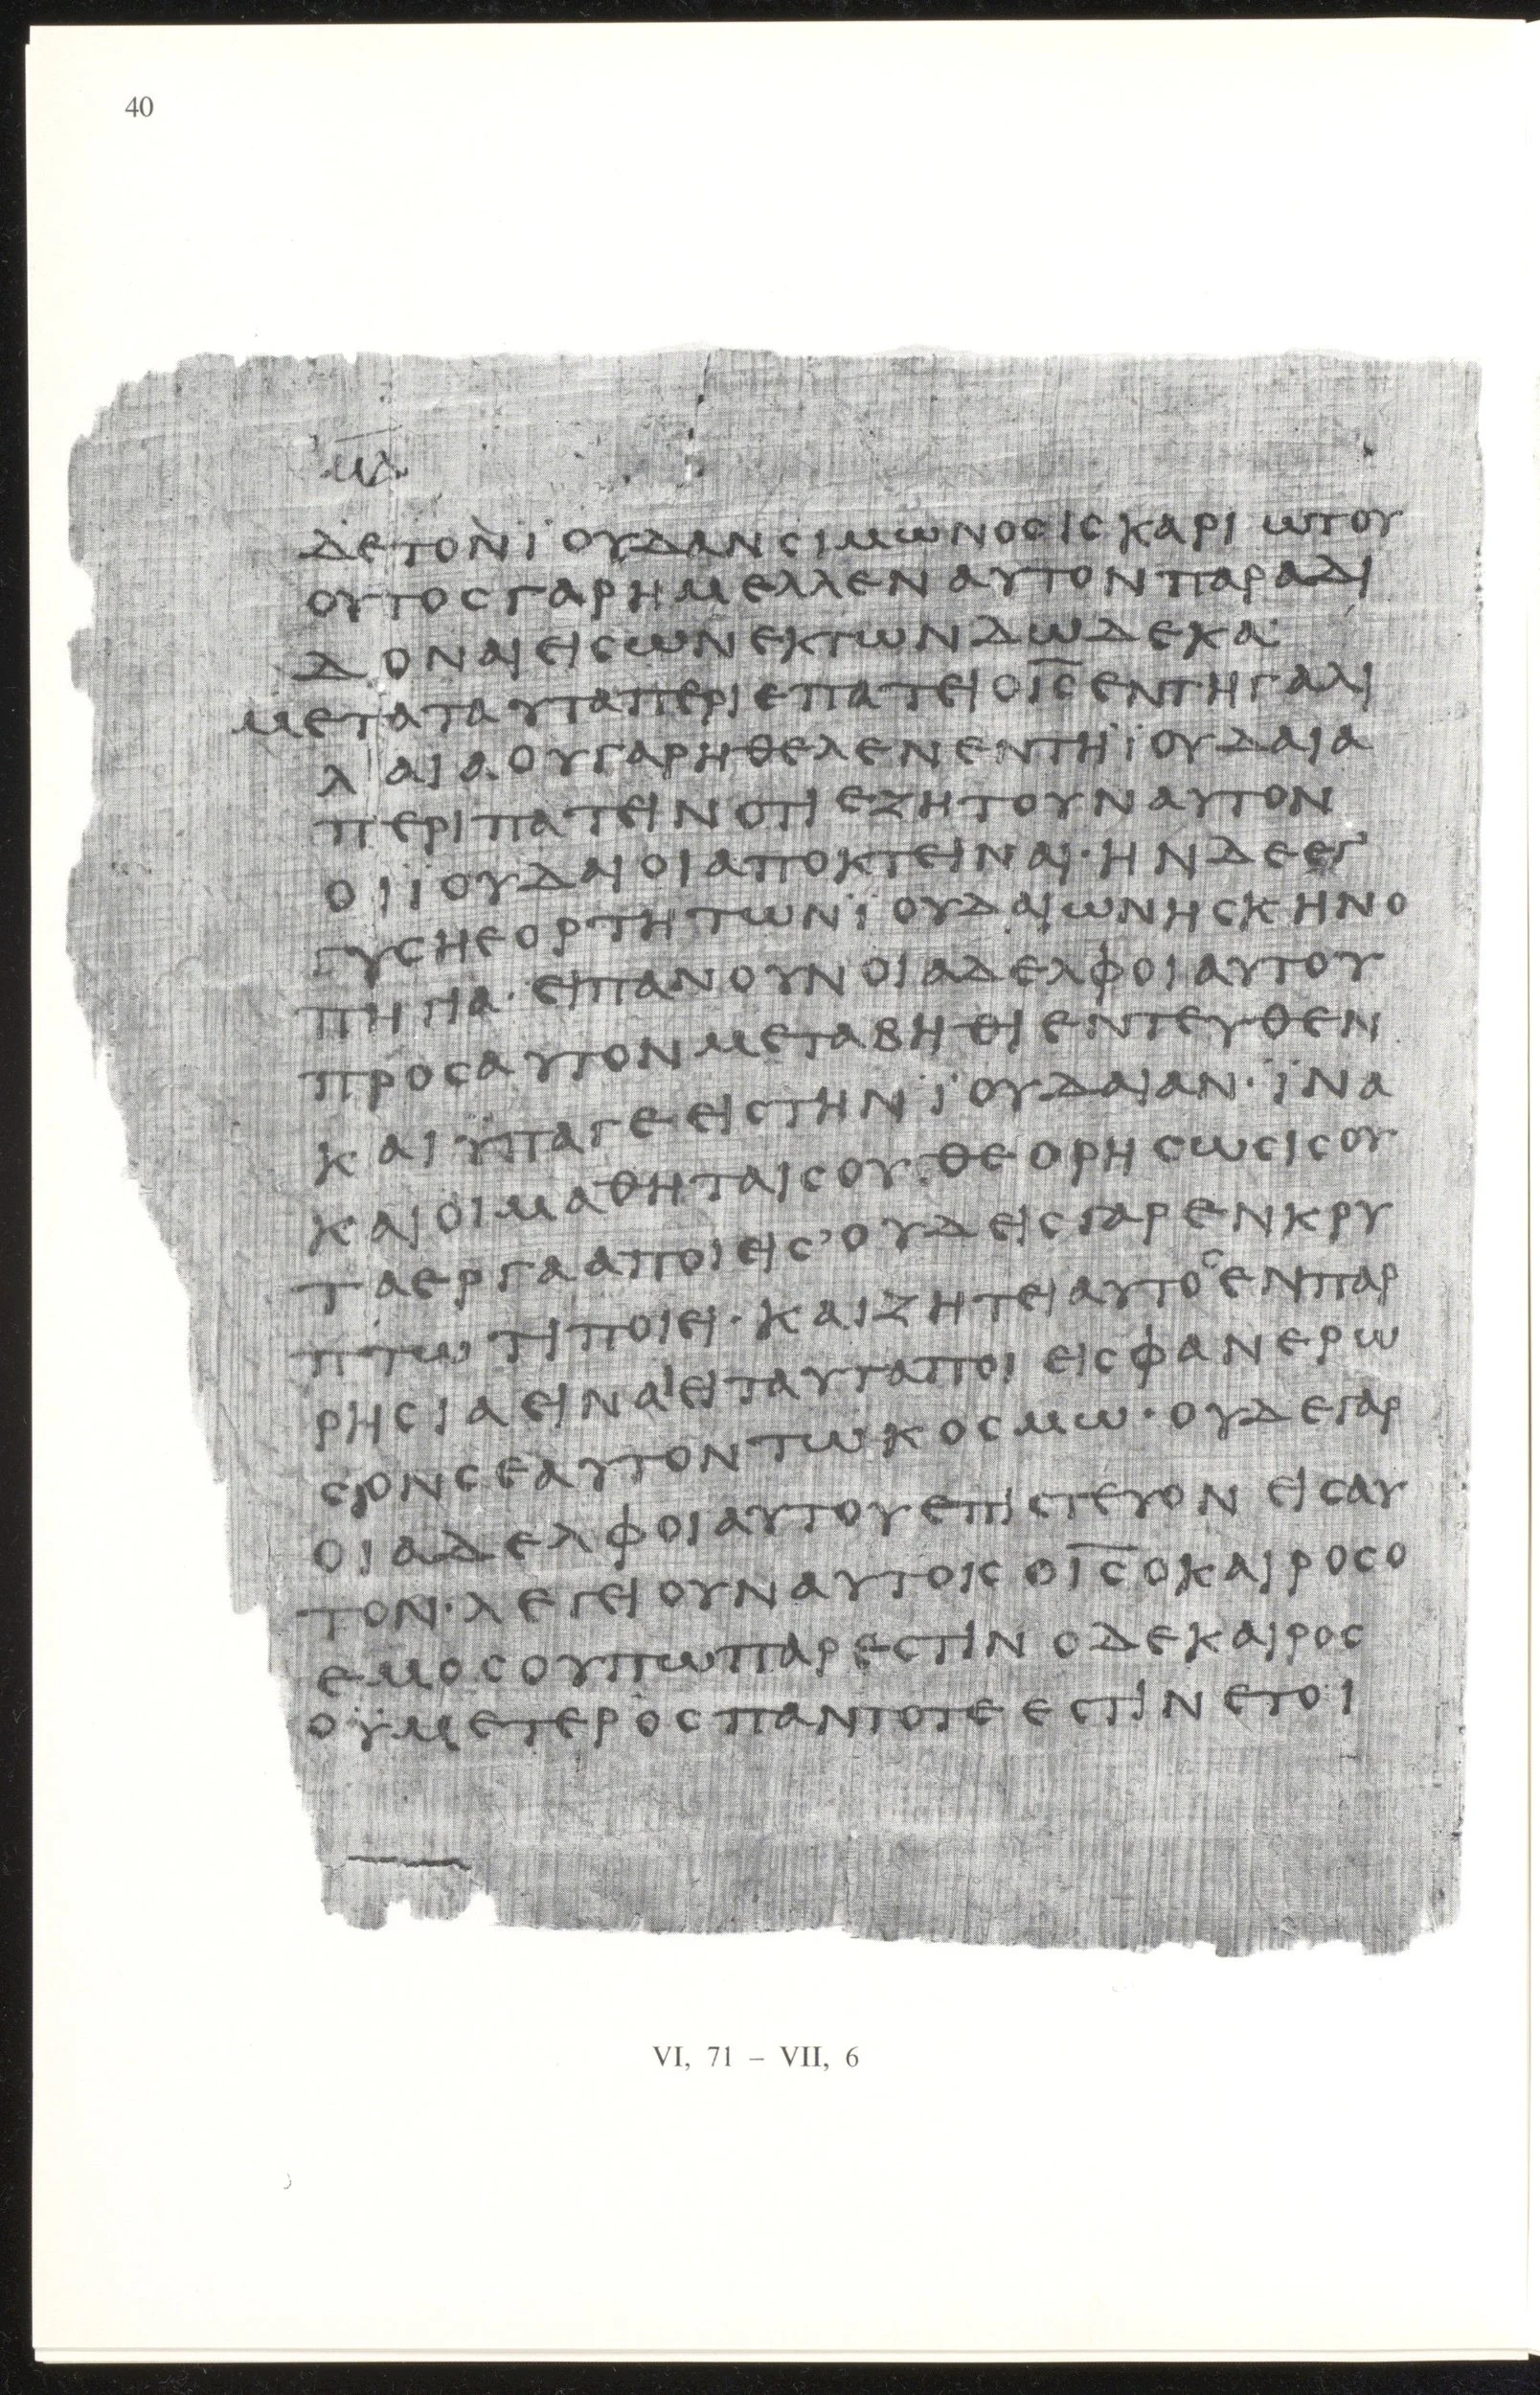 40
μα
δετονϊουδανσιμωνοσισκαριωτου
ουτοσγαρημελλεναυτονπαραδι
δοναιεισωνεκτωνδωδεκα
μεταταυταπεριεπατειοι̅σ̅εντηγαλι
λαια·ουγαρηθελενεντηϊουδαια
περιπατεινοτιεζητουναυτον
οιϊουδαιοιαποκτειναι·ηνδεεγ'
γυσηεορτητωνϊουδαιωνησκηνο
πηγια·ειπανουνοιαδελφοιαυτου
προσαυτονμεταβηθιεντευθεν
καιϋπαγεειστηνϊουδαιαν·ϊνα
καιοιμαθηταισου·θεορησωσισου
ταεργααποιεισ'ουδεισγαρενκρυ
πτωτιποιει·καιζητειαυτοσενπαρ
ρησιαειναιειταυταποιεισφανερω
σονσεαυτοντωκοσμω·ουδεγαρ
οιαδελφοιαυτουεπιστευονεισαυ
τον·λεγειουναυτοισοι̅σ̅οκαιροσο
εμοσουπωπαρεστινοδεκαιροσ
οϋμετεροσπαντοτεεστινετοι
VI, 71 – VII, 6